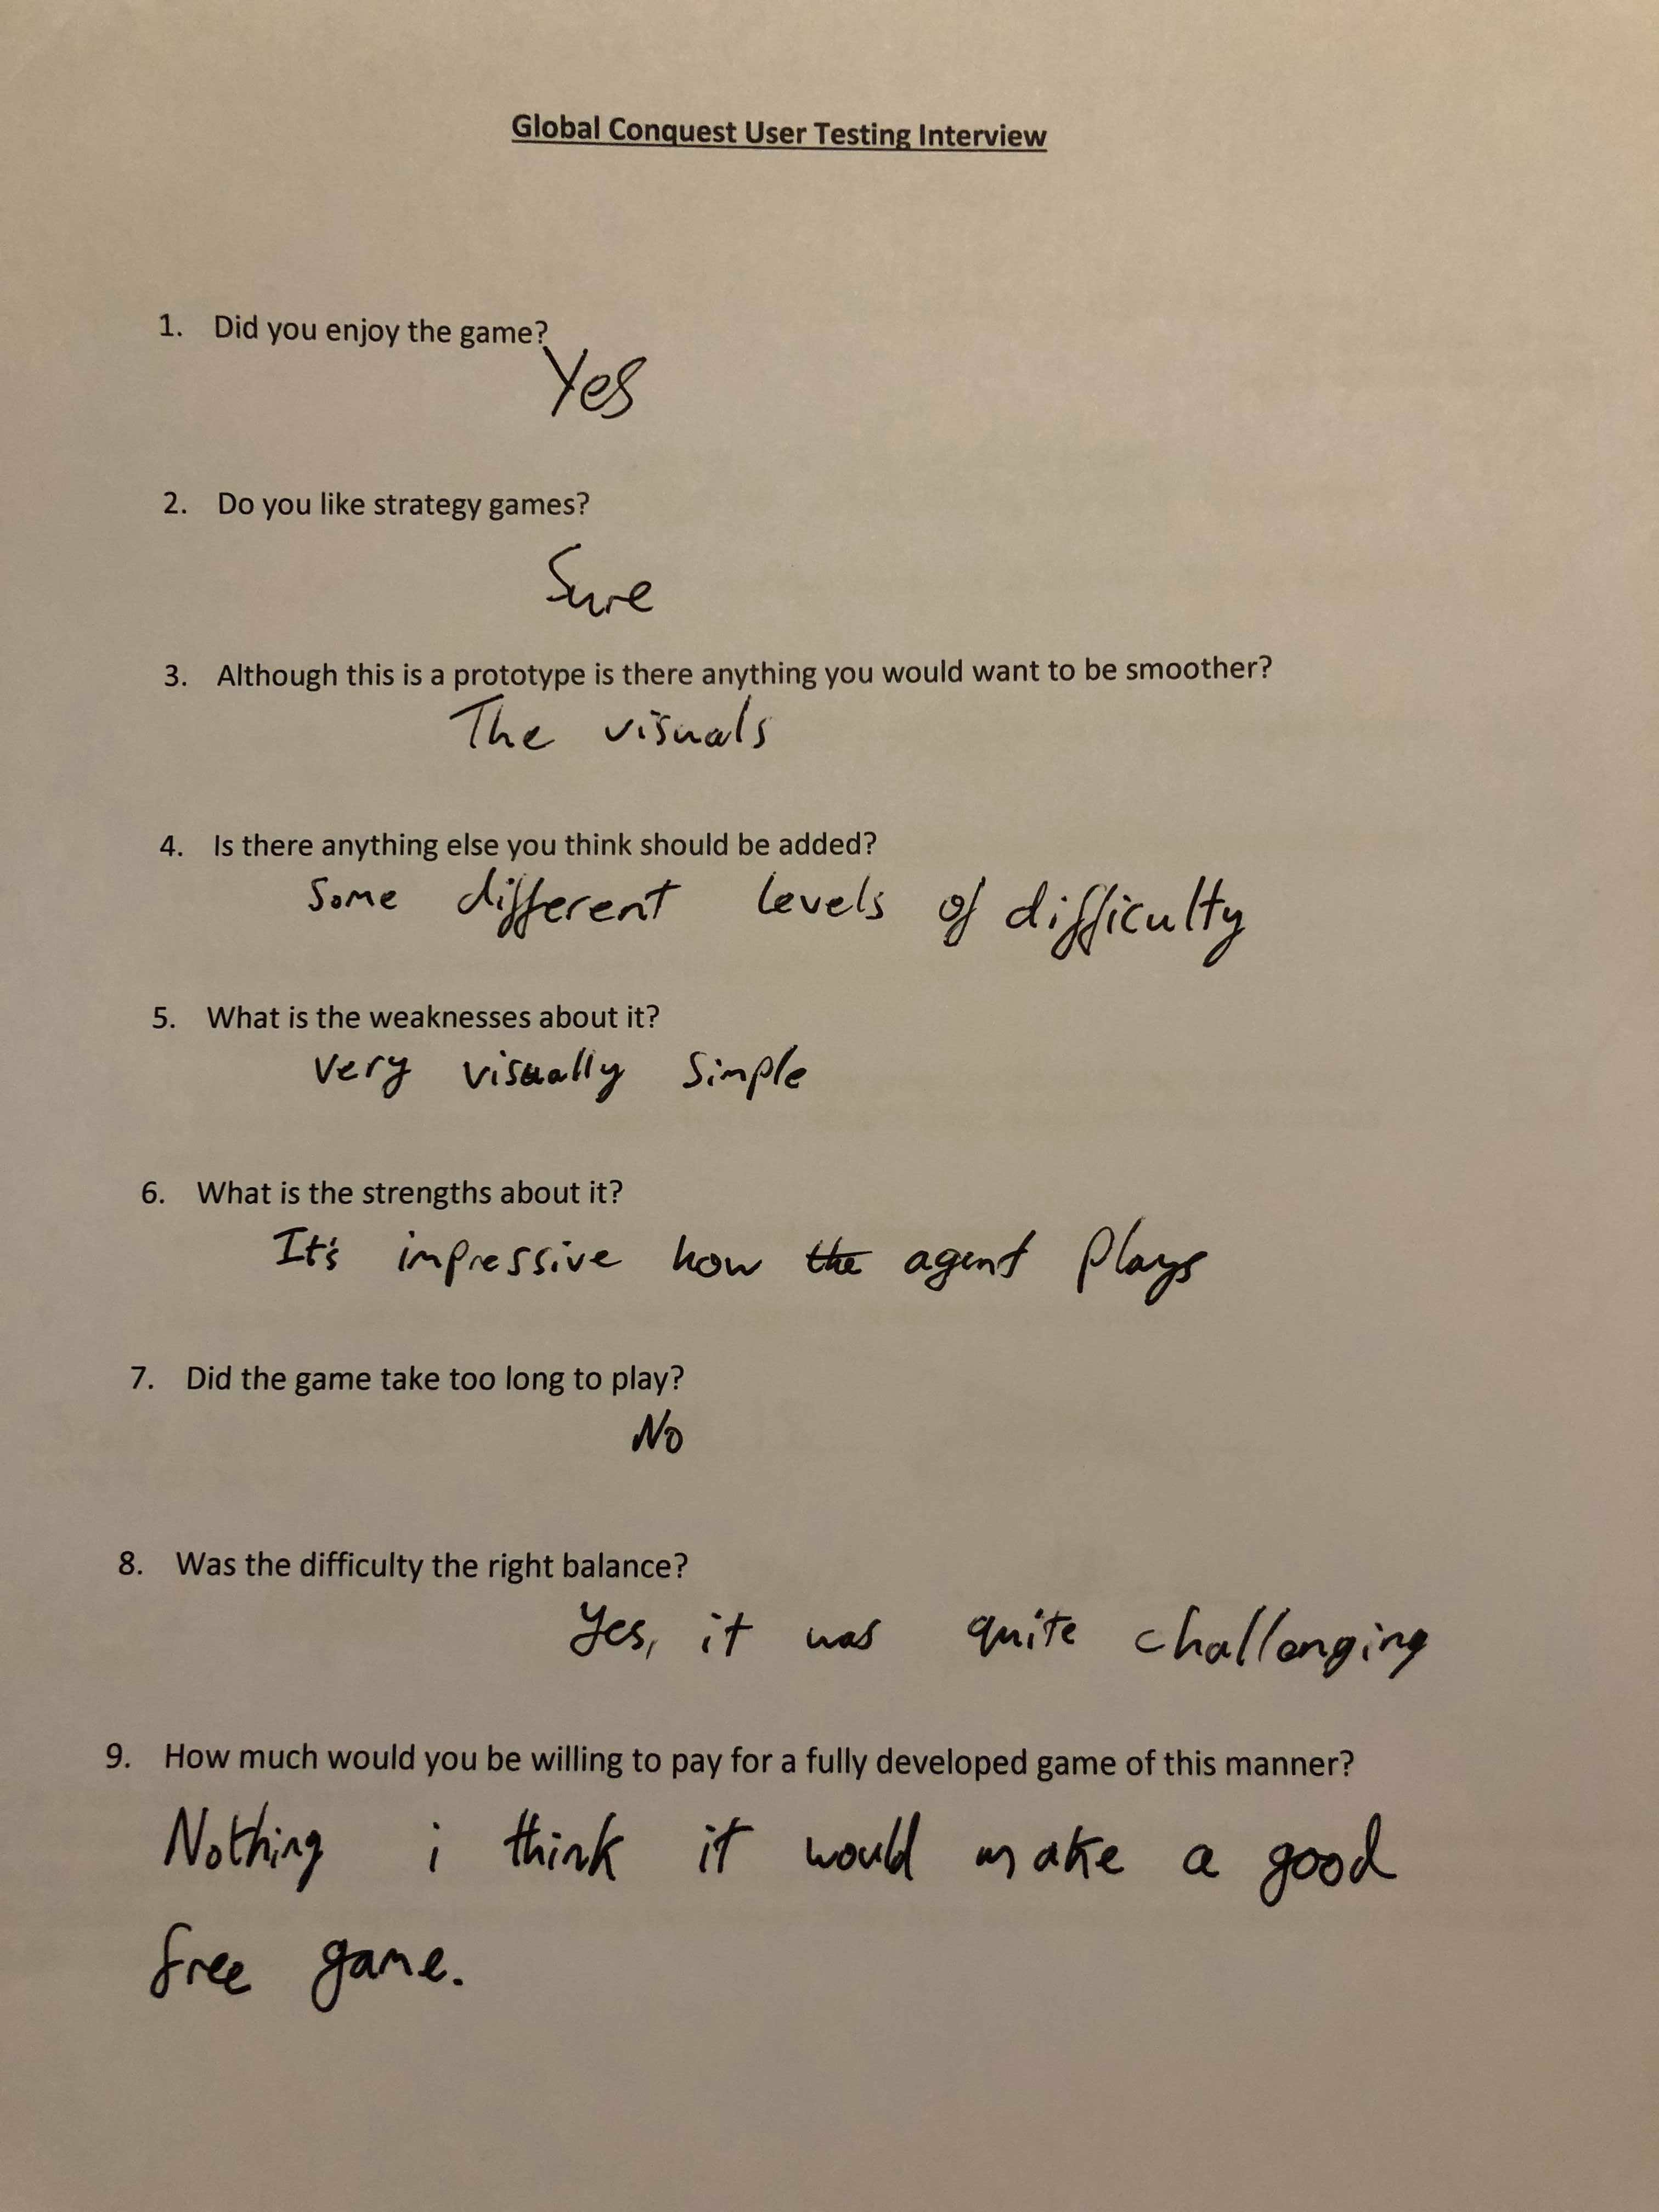 Global Conquest User Testing Interview
1. Did you enjoy the game?
Yes
2. Do you like strategy games?
Sure
3. Although this is a prototype is there anything you would want to be smoother?
The visuals
4. Is there anything else you think should be added?
Some different levels of difficulty
5. What is the weaknesses about it?
Very visually simple
6. What is the strengths about it?
It's impressive how the agent plays
7. Did the game take too long to play?
No
8. Was the difficulty the right balance?
Yes, it was quite challenging
9. How much would you be willing to pay for a fully developed game of this manner?
Nothing i think it would make a good
free game.